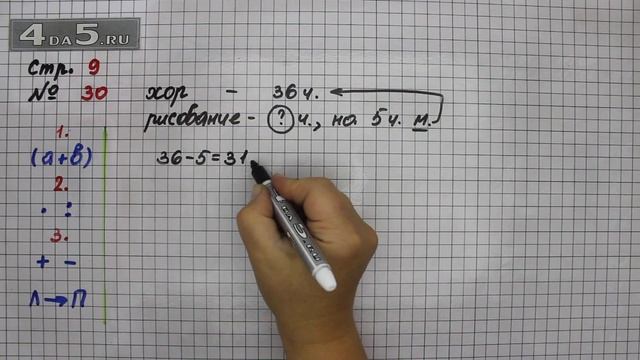 4DA5.RU
Стр. 9
№ 30
1.
(а+в)
2.
· :
3.
+ -
Л→П
хор - 36 ч.
рисование - ? ч., на 5 ч. м.
36-5=31
4DA5.RU